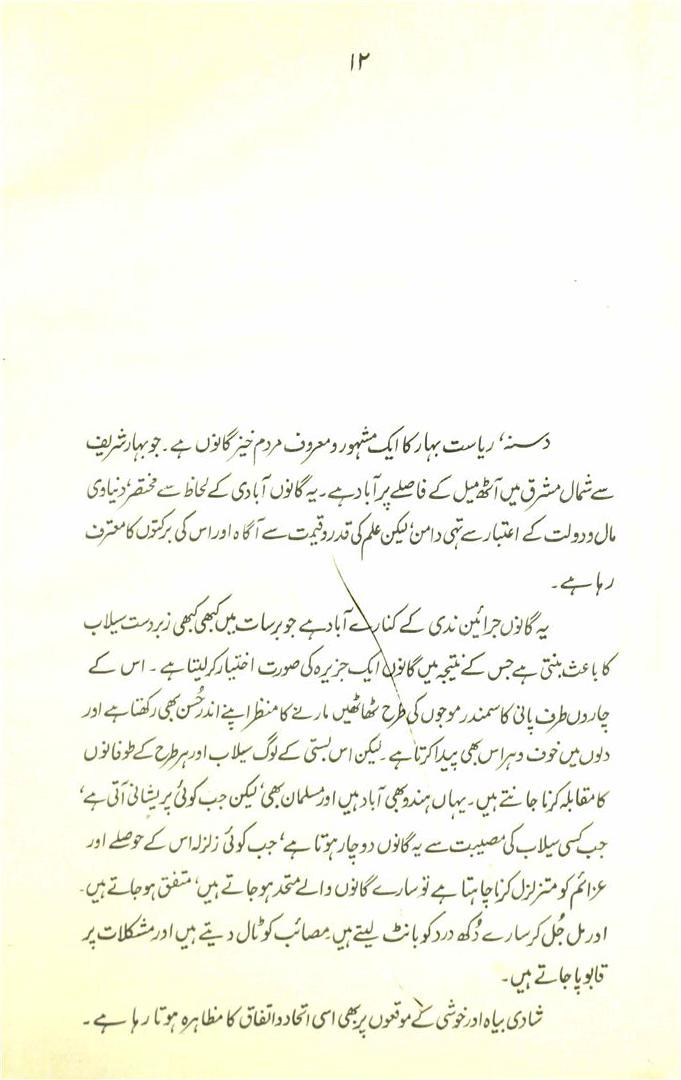 ۱۲
دسنہ، ریاست بہار کا ایک مشہور و معروف مردم خیز گانوں ہے۔ جو بہار شریف
سے شمال مشرق میں آٹھ میل کے فاصلے پر آباد ہے۔ یہ گانوں آبادی کے لحاظ سے مختصر، دنیاوی
مال و دولت کے اعتبار سے تہی دامن، لیکن علم کی قدر و قیمت سے آگاہ اور اس کی برکتوں کا معترف
رہا ہے۔
یہ گانوں جرائین ندی کے کنارے آباد ہے جو برسات میں کبھی کبھی زبردست سیلاب
کا باعث بنتی ہے جس کے نتیجہ میں گانوں ایک جزیرہ کی صورت اختیار کر لیتا ہے۔ اس کے
چاروں طرف پانی کا سمندر موجوں کی طرح ٹھاٹھیں مارنے کا منظر اپنے اندر حُسن بھی رکھتا ہے اور
دلوں میں خوف و ہراس بھی پیدا کرتا ہے۔ لیکن اس بستی کے لوگ سیلاب اور ہر طرح کے طوفانوں
کا مقابلہ کرنا جانتے ہیں۔ یہاں ہندو بھی آباد ہیں اور مسلمان بھی، لیکن جب کوئی پریشانی آتی ہے،
جب کسی سیلاب کی مصیبت سے یہ گانوں دوچار ہوتا ہے، جب کوئی زلزلہ اس کے حوصلے اور
عزائم کو متزلزل کرنا چاہتا ہے تو سارے گانوں والے متحد ہو جاتے ہیں، متفق ہو جاتے ہیں۔
اور مل جُل کر سارے دُکھ درد کو بانٹ لیتے ہیں۔ مصائب کو ٹال دیتے ہیں اور مشکلات پر
قابو پا جاتے ہیں۔
شادی بیاہ اور خوشی کے موقعوں پر بھی اسی اتحاد و اتفاق کا مظاہرہ ہوتا رہا ہے۔